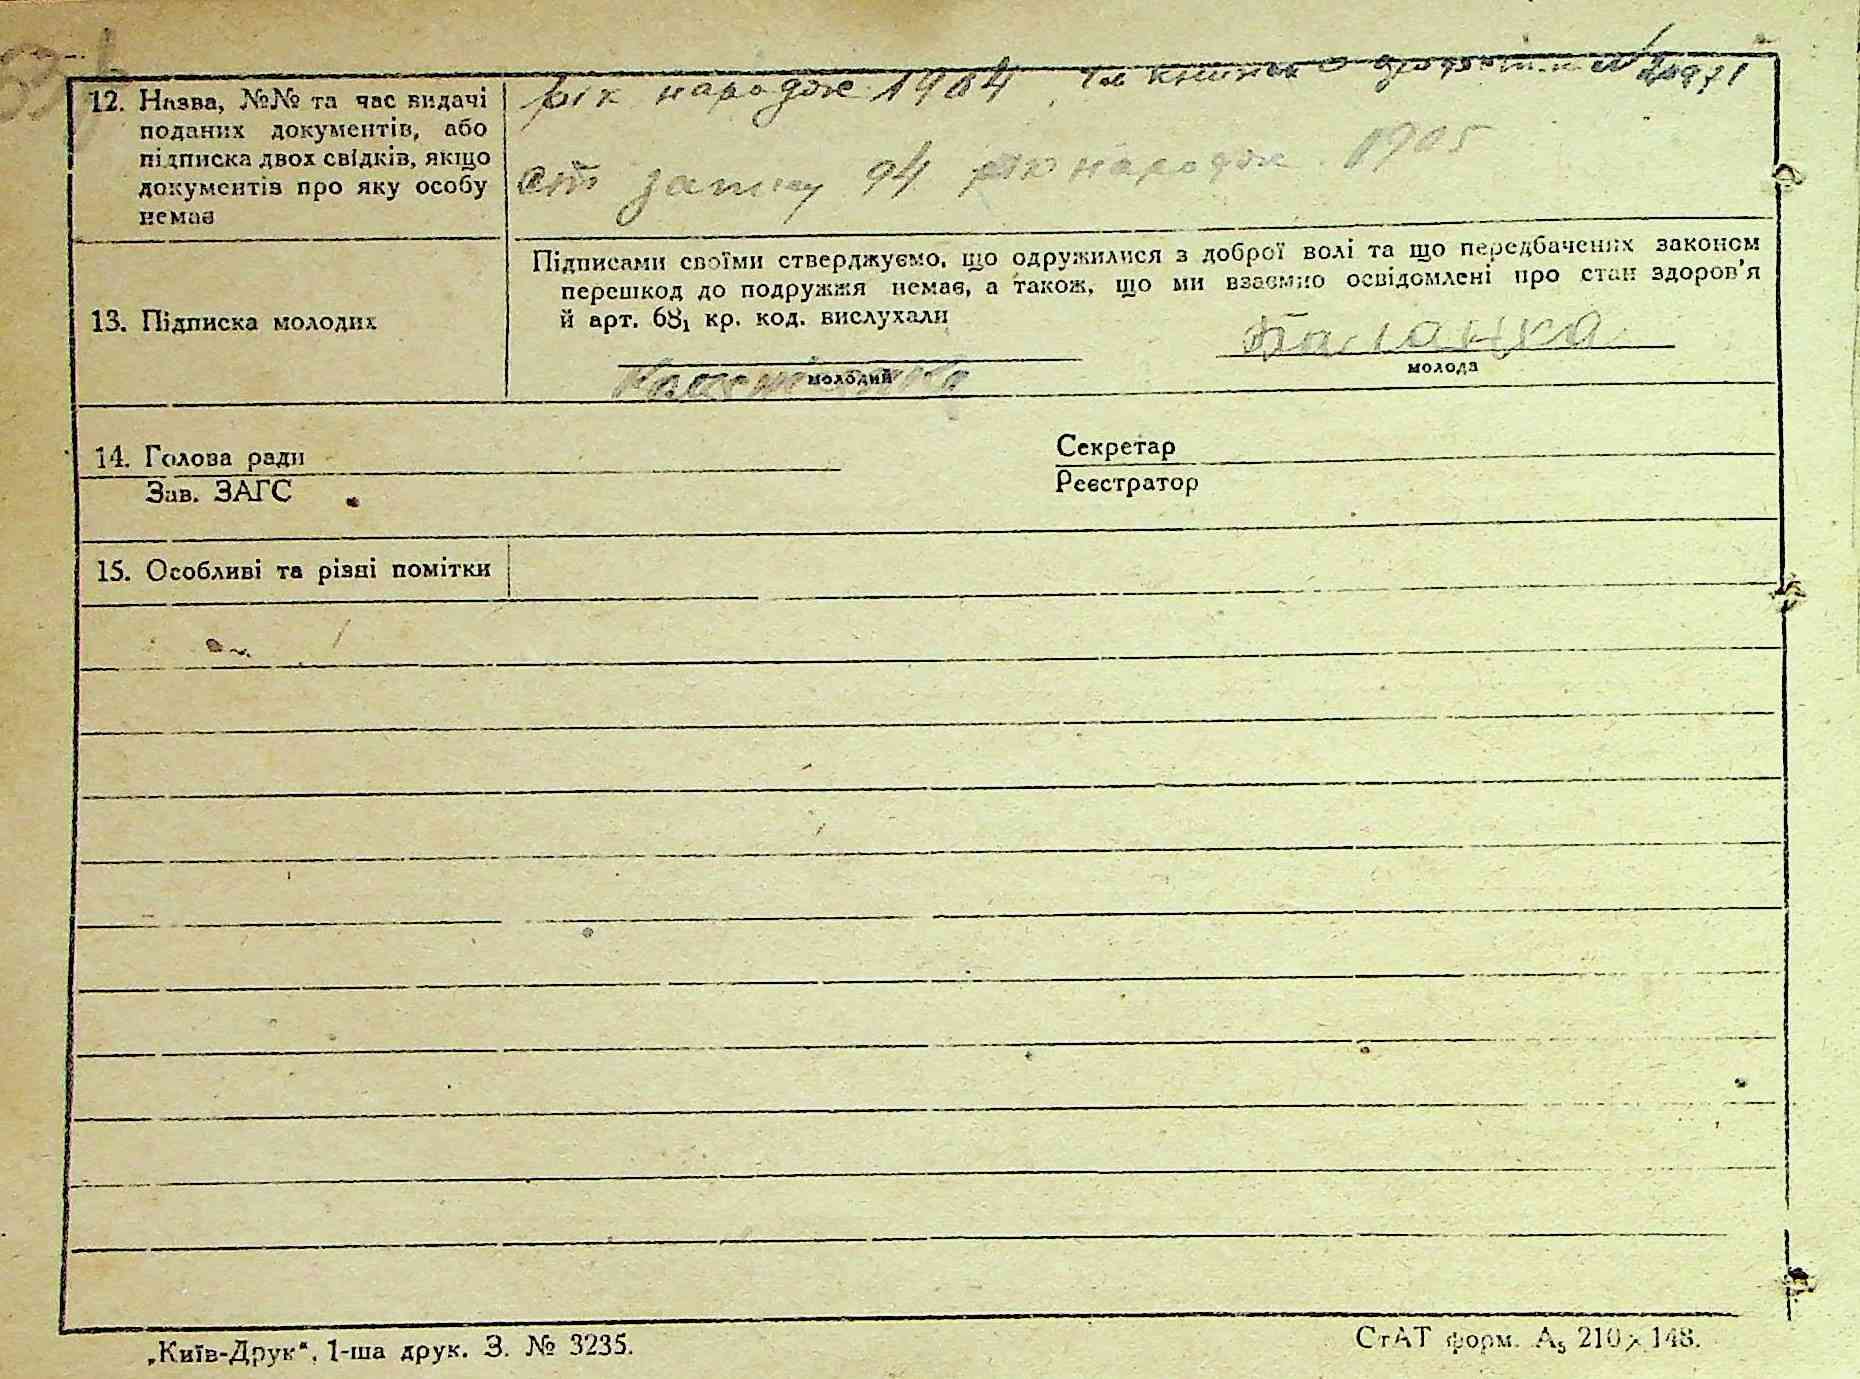 рік народж 1904 Чл книжка
12. Назва, №№ та час видачі
поданих документів, або
підписка двох свідків, якщо
документів про яку особу
немає
запису 94 рік народж. 1905
Підписами своїми стверджуємо, що одружилися з доброї волі та що передбачених законом
перешкод до подружжя немає, а також, що ми взаємно освідомлені про стан здоров'я
й арт. 68₁ кр. код. вислухали
13. Підписка молодих
молодий
молода
14. Голова ради
Зав. ЗАГС
Секретар
Реєстратор
15. Особливі та різні помітки
„Київ-Друк“, 1-ша друк. З. № 3235.
СтАТ форм. А₅ 210×148.